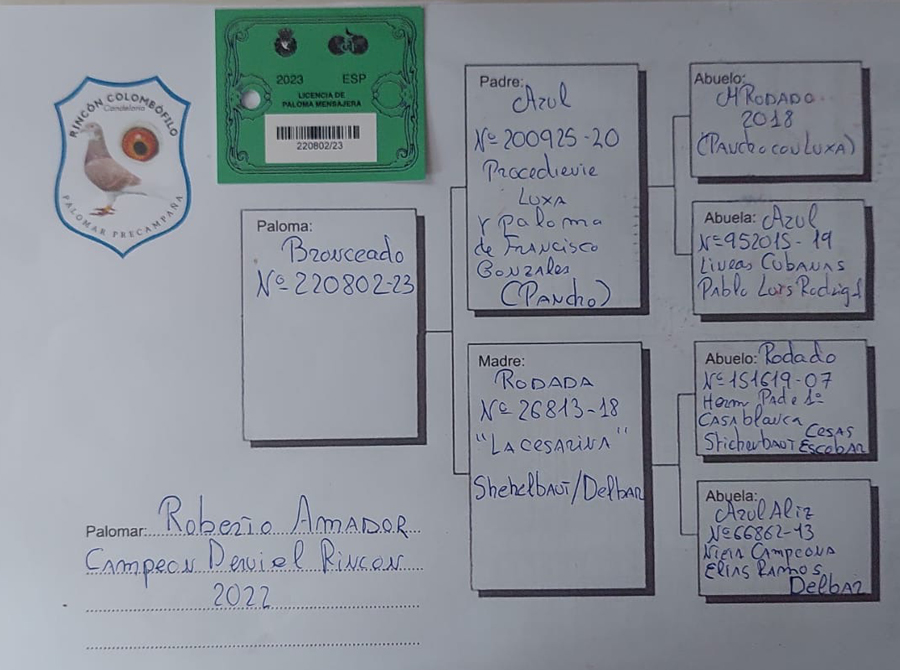 RINCÓN COLOMBÓFILO
Candelaria
PALOMAR PRECAMPAÑA
2023 ESP
LICENCIA DE
PALOMA MENSAJERA
220802/23
Paloma:
Bronceado
Nº 220802-23
Padre:
Azul
Nº 200925-20
Procediente
LUXA
Y paloma
de Francisco
Gonzales
(PANCHO)
Madre:
RODADA
Nº 26813-18
"LA CESARINA"
Shehelbaut/Delbar
Abuelo:
RODADO
2018
(PANCHO CON LUXA)
Abuela: Azul
Nº 952015-19
Lineas CUBANAS
Pablo Luis Rodrig
Abuelo: Rodado
Nº 151619-07
Herm Pade 1º
CASAblanca
Stichelbaut CESAS
ESCOBAR
Abuela:
Azul Aliz
Nº 66862-13
Nieta CAMPEONA
ELIAS RAMOS
Delbar
Palomar: Roberto AMADOR
CAMPEON Rincon
2022